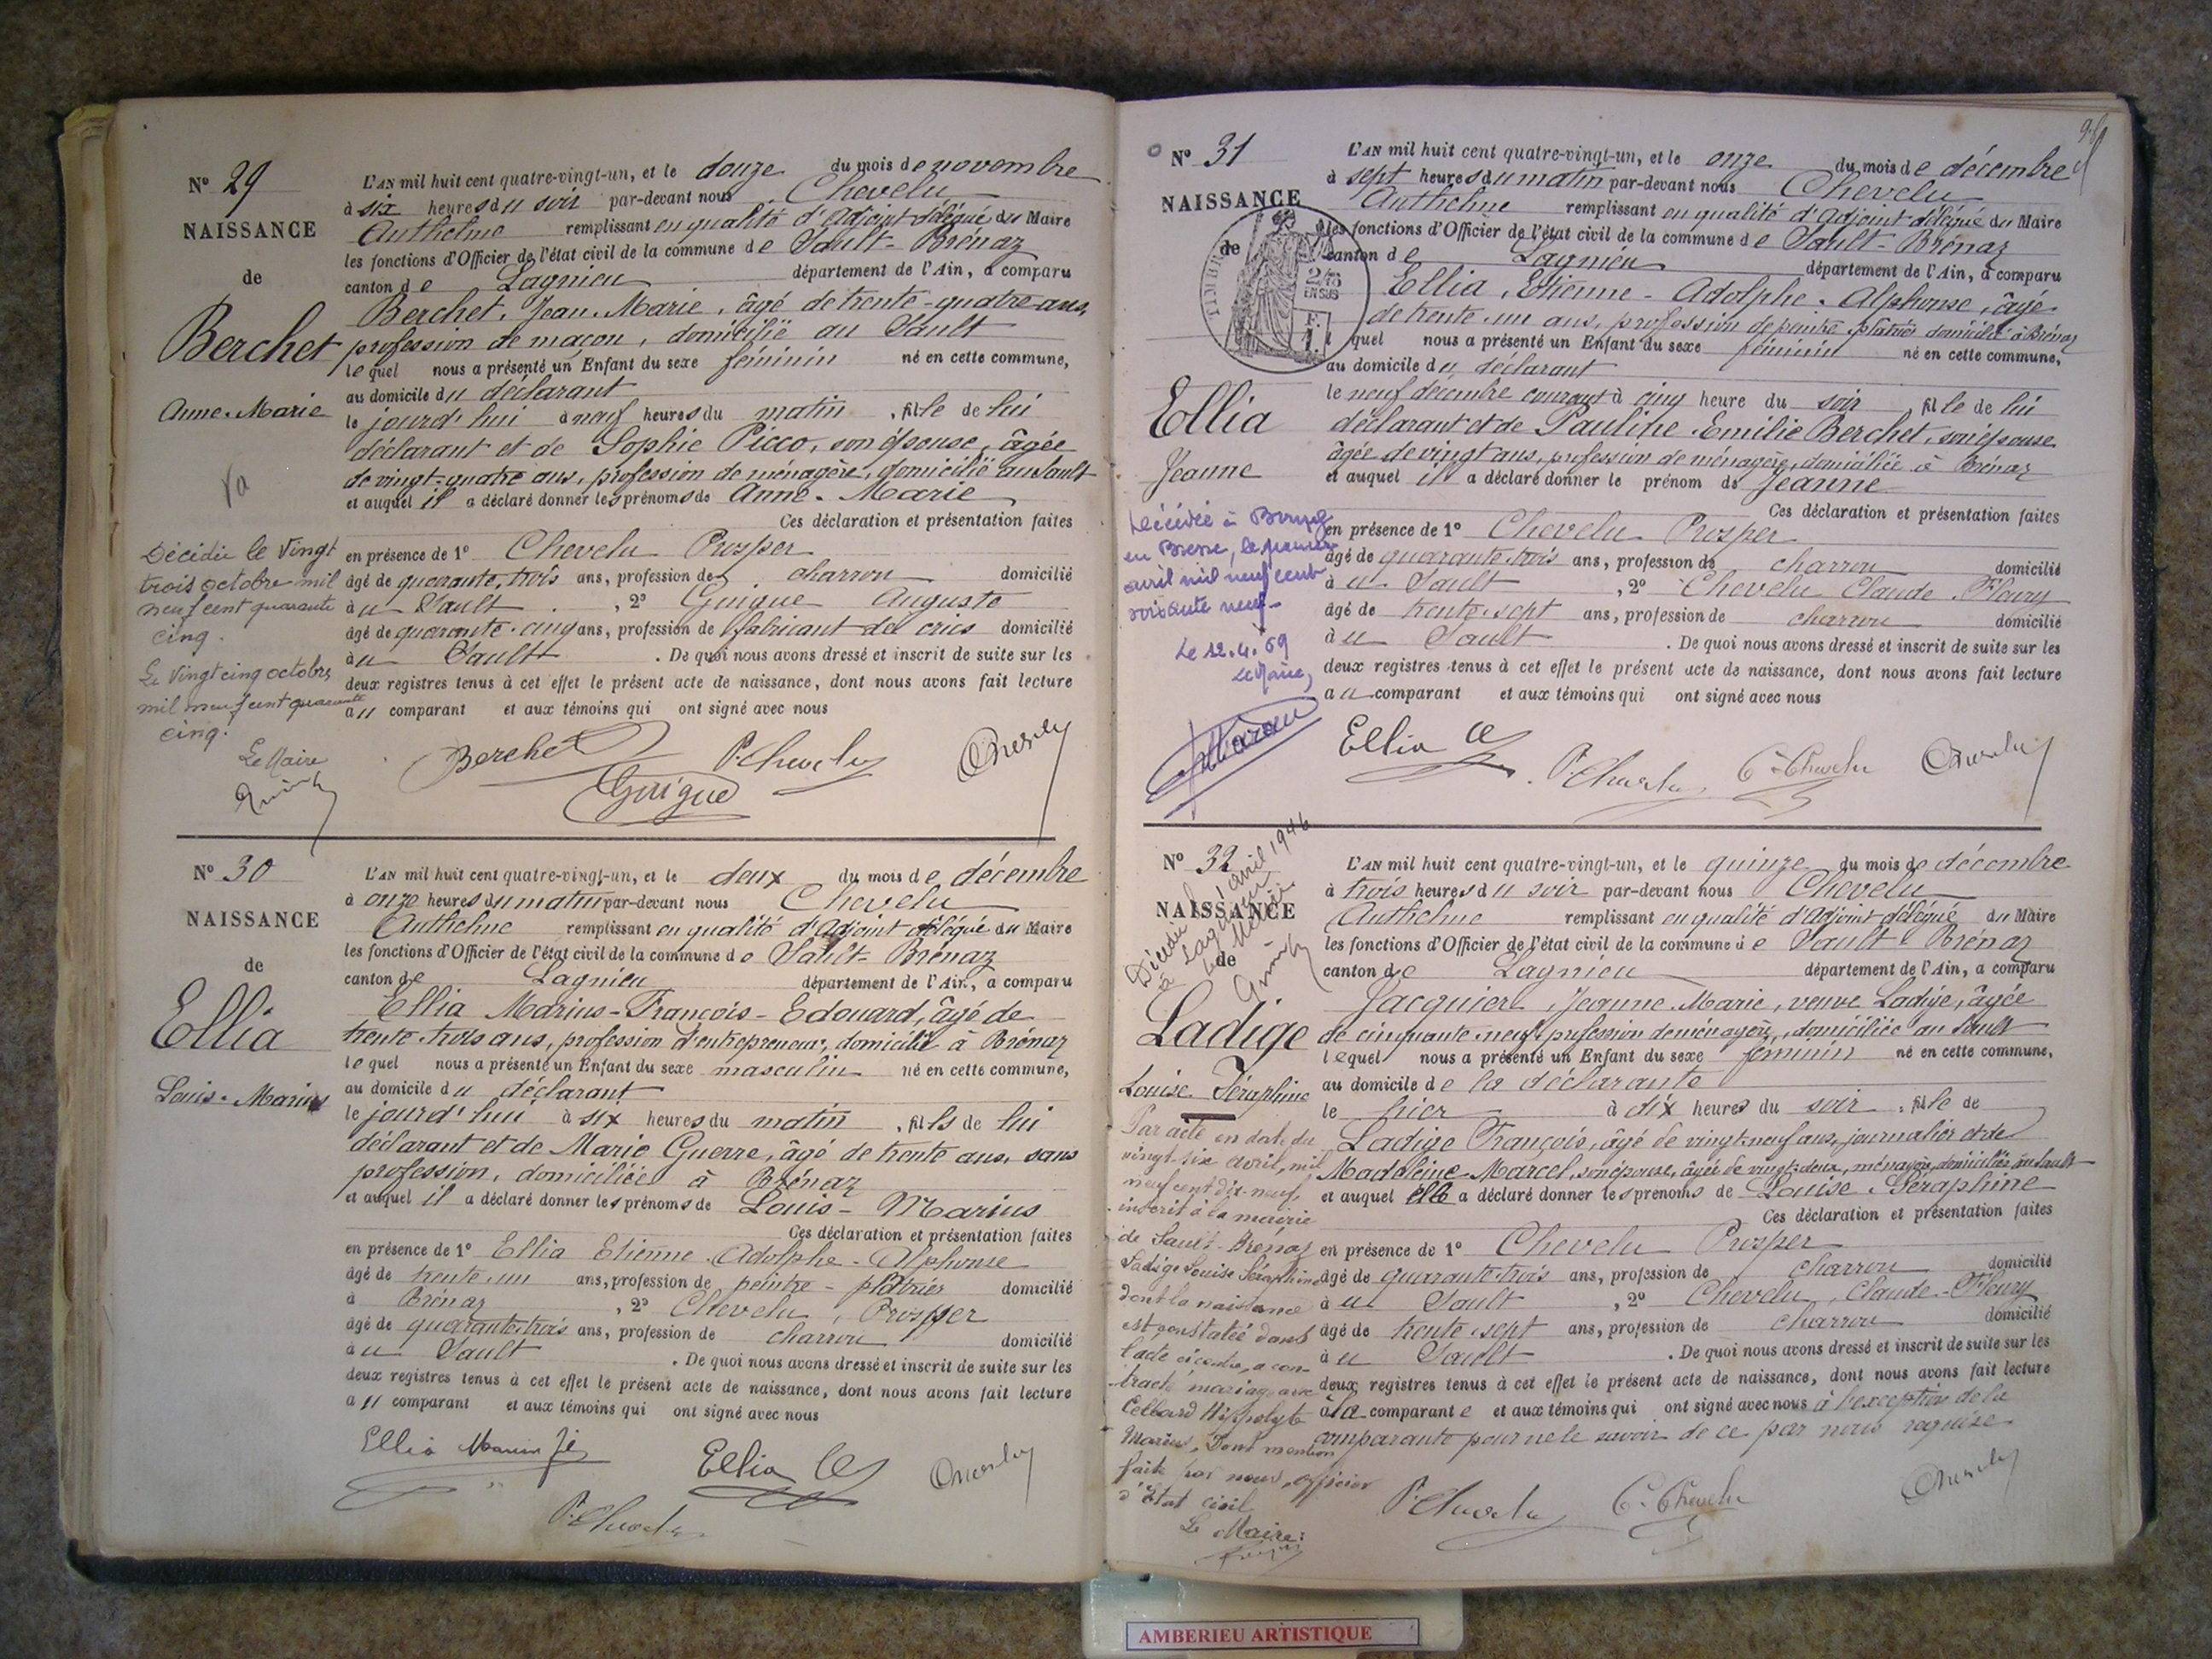 N° 29
NAISSANCE
de
Berchet
Anne-Marie
Décédée le vingt
trois octobre mil
neuf cent quarante
cinq.
Le vingt cinq octobre
mil neuf cent quarante
cinq.
Le Maire
L'AN mil huit cent quatre-vingt-un, et le douze du mois de novembre
à six heures du soir par-devant nous Chevelu
Anthelme remplissant en qualité d'adjoint délégué du Maire
les fonctions d'Officier de l'état civil de la commune de Sault-Brénaz
canton de Lagnieu département de l'Ain, a comparu
Berchet, Jean-Marie, âgé de trente-quatre ans,
profession de maçon, domicilié au Sault
lequel nous a présenté un Enfant du sexe féminin né en cette commune,
au domicile du déclarant
le jourd'hui à neuf heures du matin, fille de lui
déclarant et de Sophie Picco, son épouse, âgée
de vingt-quatre ans, profession de ménagère, domicilié au Sault
et auquel il a déclaré donner les prénoms de Anne-Marie
Ces déclaration et présentation faites
en présence de 1° Chevelu Prosper
âgé de quarante-trois ans, profession de charron domicilié
à u Sault, 2° Guigue Auguste
âgé de quarante-cinq ans, profession de fabricant de crics domicilié
à u Sault. De quoi nous avons dressé et inscrit de suite sur les
deux registres tenus à cet effet le présent acte de naissance, dont nous avons fait lecture
au comparant et aux témoins qui ont signé avec nous
Berchet P. Chevelu
Guigue
N° 30
NAISSANCE
de
Ellia
Louis-Marius
L'AN mil huit cent quatre-vingt-un, et le deux du mois de décembre
à onze heures du matin par-devant nous Chevelu
Anthelme remplissant en qualité d'adjoint délégué du Maire
les fonctions d'Officier de l'état civil de la commune de Sault-Brénaz
canton de Lagnieu département de l'Ain, a comparu
Ellia Marius-François-Edouard, âgé de
trente-trois ans, profession d'entrepreneur, domicilié à Brénaz
lequel nous a présenté un Enfant du sexe masculin né en cette commune,
au domicile du déclarant
le jourd'hui à six heures du matin, fils de lui
déclarant et de Marie Guerre, âgé de trente ans, sans
profession, domiciliée à Brénaz
et auquel il a déclaré donner les prénoms de Louis-Marius
Ces déclaration et présentation faites
en présence de 1° Ellia Etienne-Adolphe-Alphonse
âgé de trente-un ans, profession de peintre-plâtrier domicilié
à Brénaz, 2° Chevelu, Prosper
âgé de quarante-trois ans, profession de charron domicilié
à u Sault. De quoi nous avons dressé et inscrit de suite sur les
deux registres tenus à cet effet le présent acte de naissance, dont nous avons fait lecture
au comparant et aux témoins qui ont signé avec nous
Ellia Ellia
P. Chevelu
N° 31
NAISSANCE
de
Ellia
Jeanne
Décédée à Bourg
en Bresse, le premier
avril mil neuf cent
soixante neuf
Le 12.4.69
Le Maire,
L'AN mil huit cent quatre-vingt-un, et le onze du mois de décembre
à sept heures du matin par-devant nous Chevelu
Anthelme remplissant en qualité d'adjoint délégué du Maire
les fonctions d'Officier de l'état civil de la commune de Sault-Brénaz
canton de Lagnieu département de l'Ain, a comparu
Ellia, Etienne-Adolphe-Alphonse, âgé
de trente-un ans, profession de peintre-plâtrier domicilié à Brénaz
lequel nous a présenté un Enfant du sexe féminin né en cette commune,
au domicile du déclarant
le neuf décembre courant à cinq heure du soir fille de lui
déclarant et de Pauline-Emilie Berchet, son épouse
âgée de vingt ans, profession de ménagère, domiciliée à Brénaz
et auquel il a déclaré donner le prénom de Jeanne
Ces déclaration et présentation faites
en présence de 1° Chevelu Prosper
âgé de quarante-trois ans, profession de charron domicilié
à u Sault, 2° Chevelu Claude-Fleury
âgé de trente-sept ans, profession de charron domicilié
à u Sault. De quoi nous avons dressé et inscrit de suite sur les
deux registres tenus à cet effet le présent acte de naissance, dont nous avons fait lecture
au comparant et aux témoins qui ont signé avec nous
Ellia P. Chevelu C. Chevelu
N° 32
NAISSANCE
de
Ladige
Louise-Séraphine
Par acte en date du
vingt-six avril, mil
neuf cent dix-neuf,
inscrit à la mairie
de Sault-Brénaz
Ladige Louise Séraphine
dont la naissance
est constatée dans
l'acte ci contre, a con-
tracté mariage avec
Cellard Hippolyte
Marius, Dont mention
faite par nous, officier
d'Etat civil
Le Maire:
L'AN mil huit cent quatre-vingt-un, et le quinze du mois de décembre
à trois heures du soir par-devant nous Chevelu
Anthelme remplissant en qualité d'adjoint délégué du Maire
les fonctions d'Officier de l'état civil de la commune de Sault-Brénaz
canton de Lagnieu département de l'Ain, a comparu
Jacquier, Jeanne-Marie, veuve Ladige, âgée
de cinquante-neuf, profession de ménagère, domiciliée au Sault
lequel nous a présenté un Enfant du sexe féminin né en cette commune,
au domicile de la déclarante
le hier à dix heures du soir, fille de
Ladige François, âgé de vingt-neuf ans, journalier et de
Madeleine-Marcel, son épouse, âgée de vingt-deux, ménagère, domiciliés au Sault
et auquel elle a déclaré donner les prénoms de Louise-Séraphine
Ces déclaration et présentation faites
en présence de 1° Chevelu Prosper
âgé de quarante-trois ans, profession de charron domicilié
à u Sault, 2° Chevelu, Claude-Fleury
âgé de trente-sept ans, profession de charron domicilié
à u Sault. De quoi nous avons dressé et inscrit de suite sur les
deux registres tenus à cet effet le présent acte de naissance, dont nous avons fait lecture
à la comparante et aux témoins qui ont signé avec nous à l'exception de la
comparante pour ne le savoir de ce par nous requise
P. Chevelu C. Chevelu
AMBERIEU ARTISTIQUE